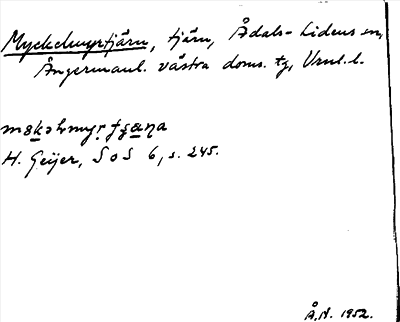 Myckelmyrtjärn, tjärn, Ådals-Lidens sn,
Ångermanl. västra doms. tg, Vnl. l.
H. Geijer, SoS 6, s. 245.
Å.N. 1952.